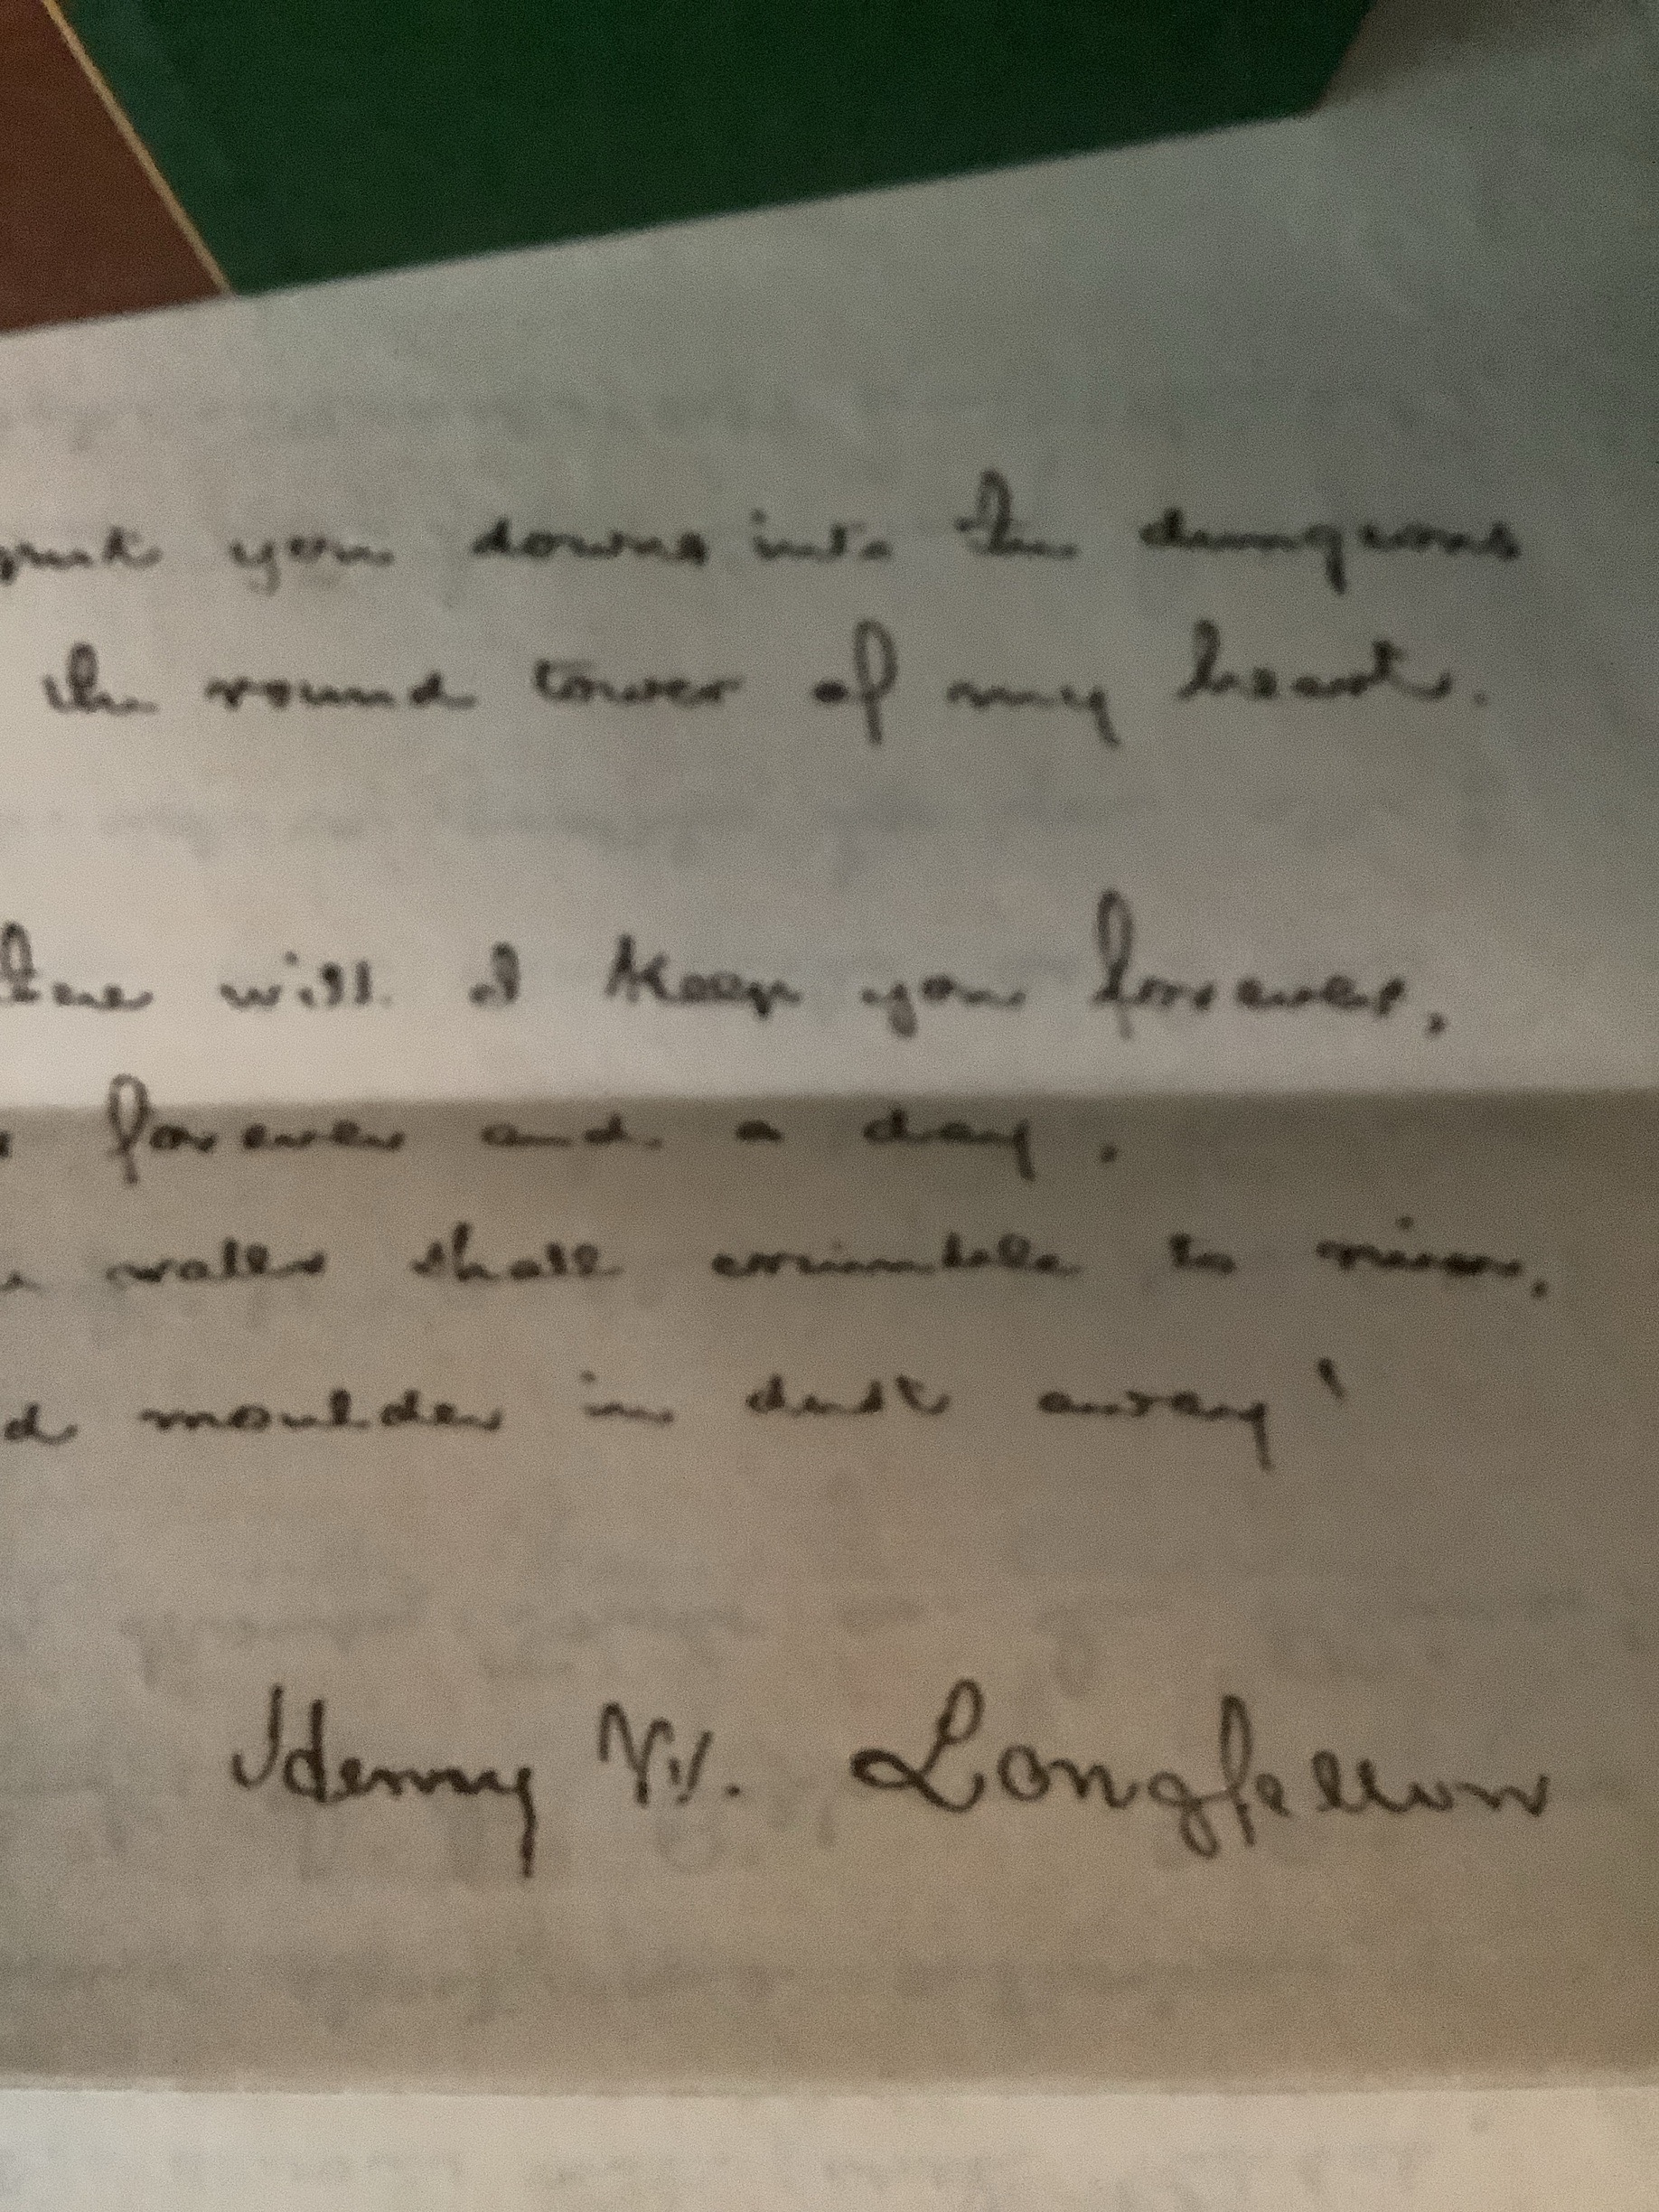 you down into the dungeons
the round tower of my heart.
will I keep you forever,
forever and a day,
walls shall crumble to ruin,
moulder in dust away!
Henry W. Longfellow